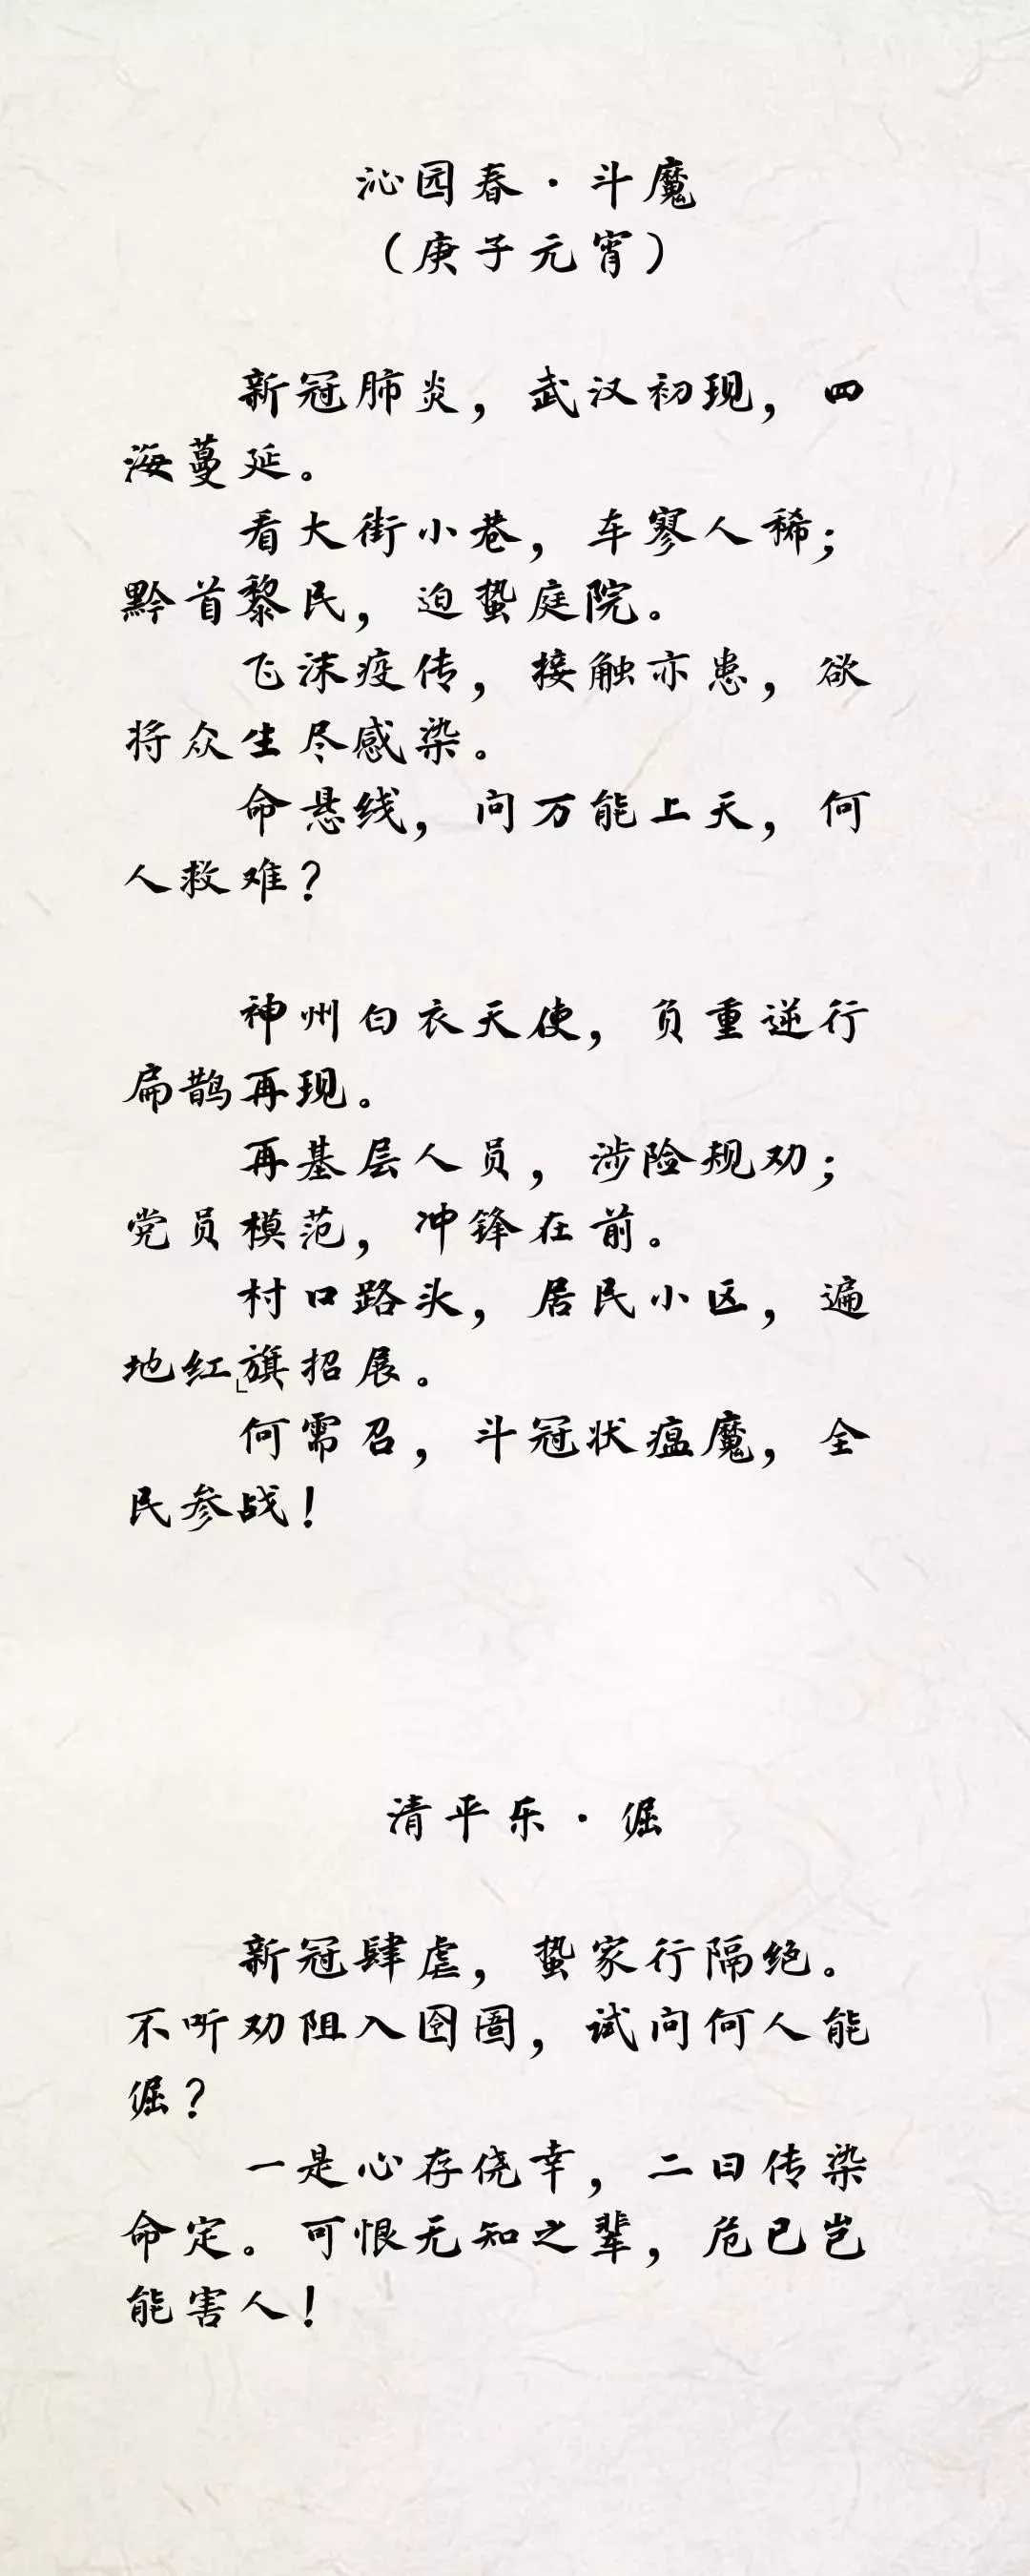 沁园春·斗魔
（庚子元宵）
新冠肺炎，武汉初现，四
海蔓延。
看大街小巷，车寥人稀；
黔首黎民，迫蛰庭院。
飞沫疫传，接触亦患，欲
将众生尽感染。
命悬线，问万能上天，何
人救难？
神州白衣天使，负重逆行
扁鹊再现。
再基层人员，涉险规劝；
党员模范，冲锋在前。
村口路头，居民小区，遍
地红旗招展。
何需召，斗冠状瘟魔，全
民参战！
清平乐·倔
新冠肆虐，蛰家行隔绝。
不听劝阻入囹圄，试问何人能
倔？
一是心存侥幸，二曰传染
命定。可恨无知之辈，危已岂
能害人！